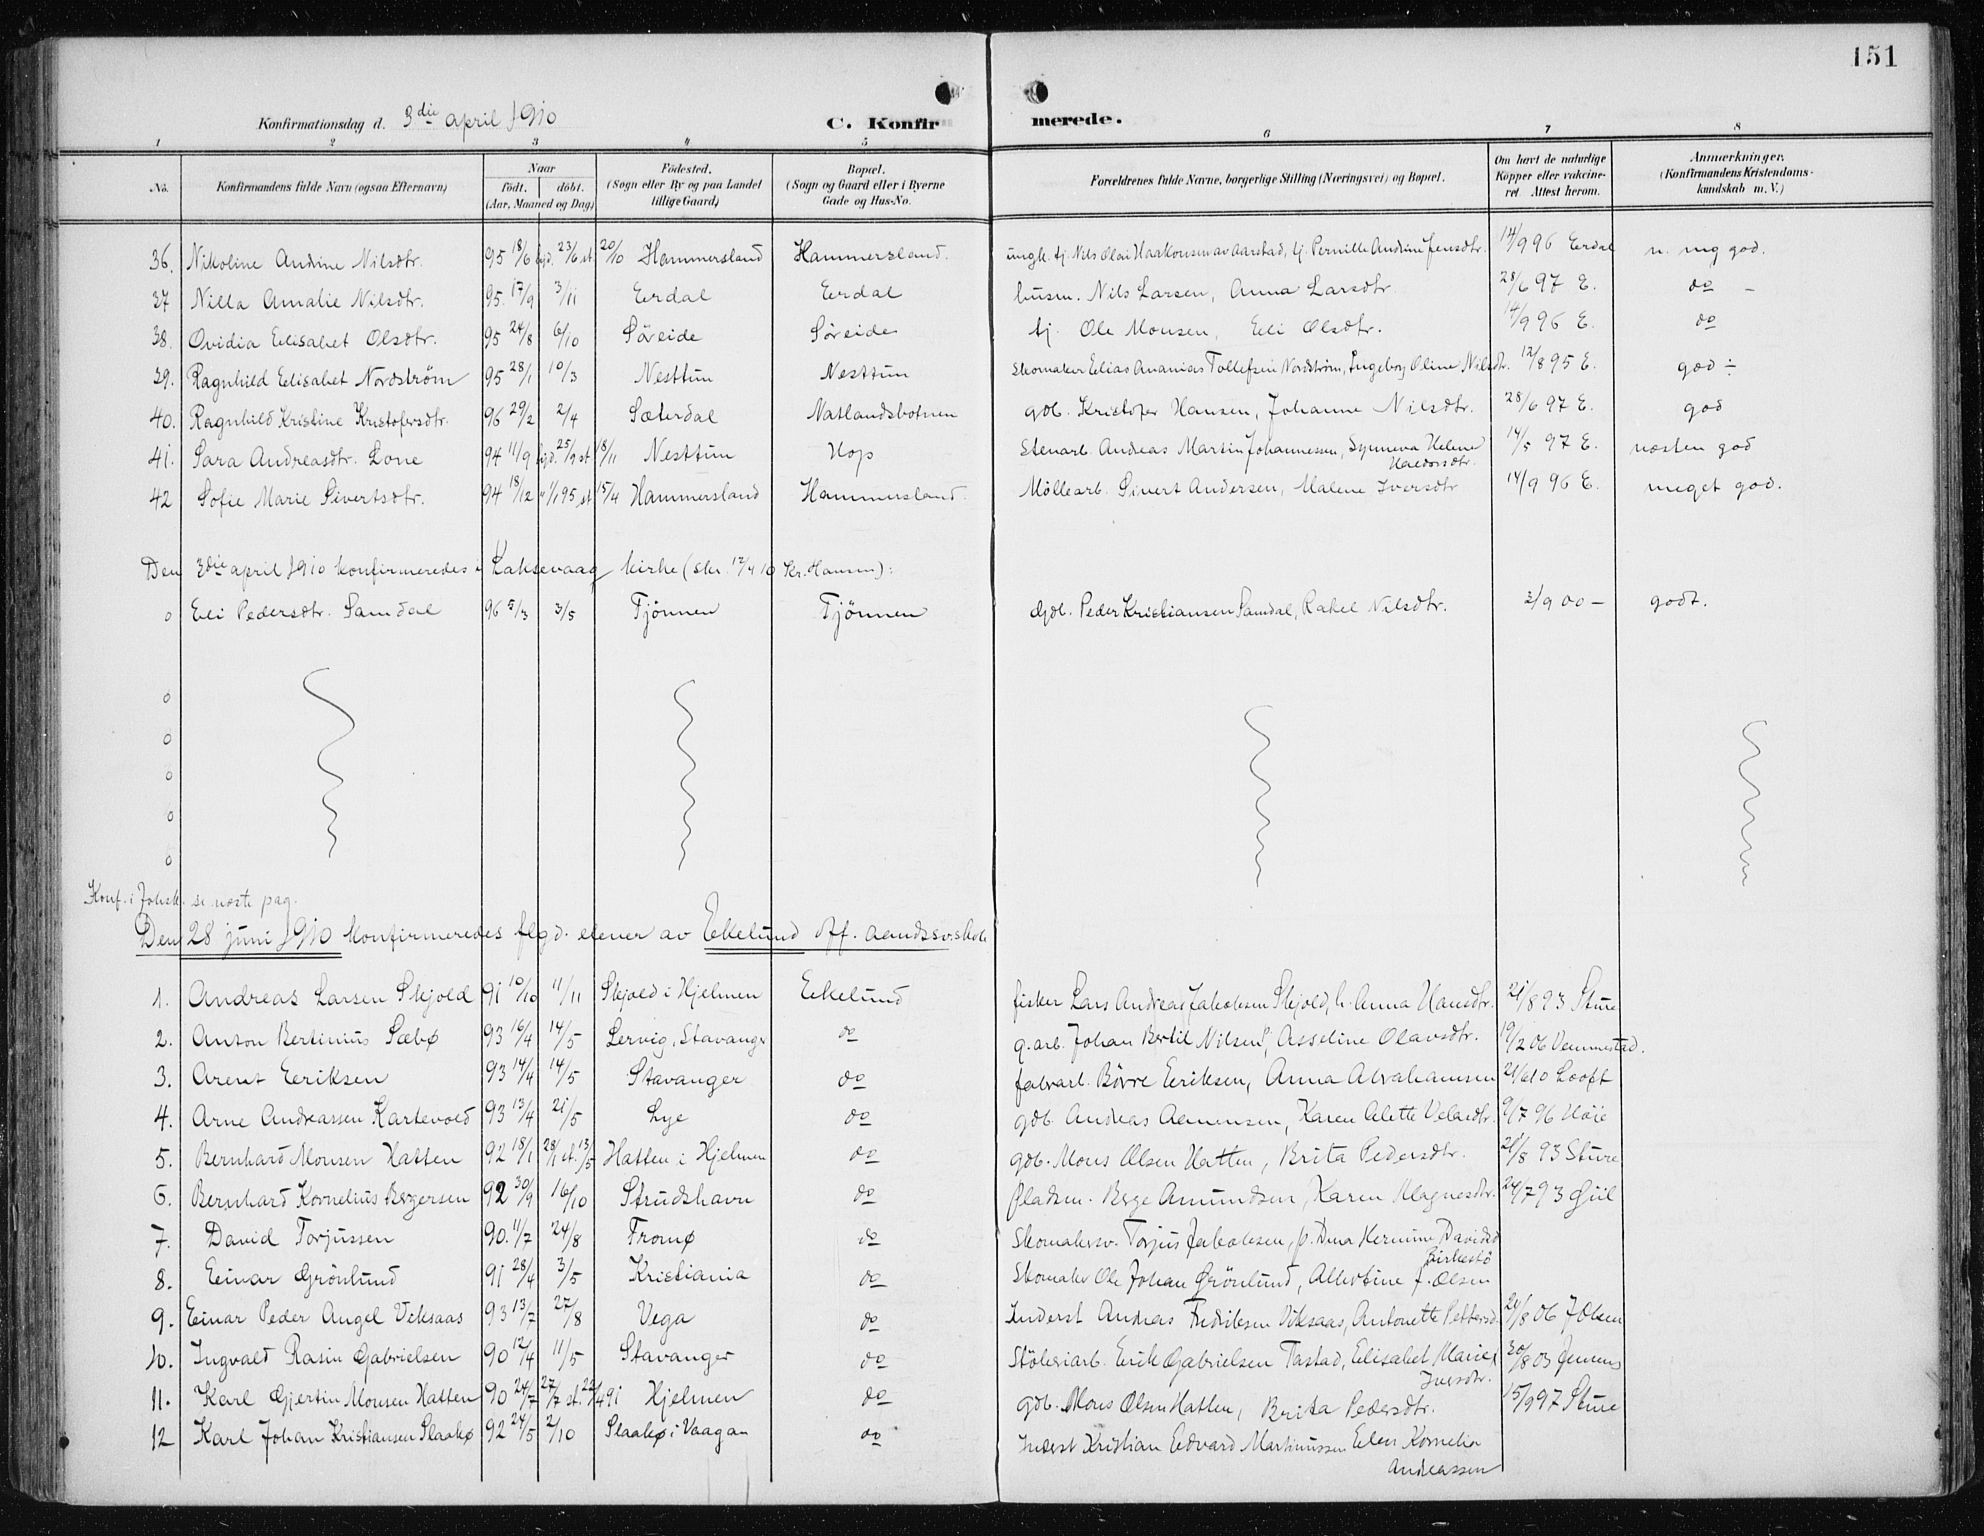 151
Konfirmationsdag d. 3die april 1910 C. Konfirmerede.
1 2 3 4 5 6 7 8
No. Konfirmandens fulde Navn (ogsaa Efternavn) Naar født. døbt. (Aar, Maaned og Dag) Fødested. (Sogn eller By og paa Landet tillige Gaard) Bopæl. (Sogn og Gaard eller i Byerne Gade og Hus-No. Forældrenes fulde Navne, borgerlige Stilling (Næringsvei) og Bopæl. Om havt de naturlige Kopper eller vakcineret. Attest herom. Anmærkninger. (Konfirmandens Kristendomskundskab m. V.)
36. Nikoline Andine Nilsdtr. 95 18/6 hjd. 23/6 st. 20/10 Hammersland Hammersland. ungk. tj. Nils Olai Haakonsen av Aarstad, tj. Pernille Andrine Jensdtr. 14/9 96 Eerdal n. mg god.
37 Nilla Amalie Nilsdtr. 95. 17/9 3/11 Eerdal Eerdal husm. Nils Larsen, Anna Larsdtr. 28/6 97 E. do –
38. Ovidia Eelisabet Olsdtr. 95 24/8 6/10 Søreide Søreide tj. Ole Monsen, Eeli Olsdtr. 14/9 96 E. do
39. Ragnhild Eelisabet Nordstrøm 95 28/1 10/3 Nesttun Nesttun Skomaker Eelias Ananias Tollefsen Nordstrøm, Ingeborg Oline Nilsdtr. 12/8 95 E. god ÷
40. Ragnhild Kristine Kristofersdtr. 96 29/2 2/4 Sæterdal Natlandsbotnen gdb. Kristofer Hansen, Johanne Nilsdtr. 28/6 97 E. god
41. Sara Andreasdtr. Lone 94 11/9 hjd. 25/9 st 18/11 Nesttun Hop Stenarb. Andreas Martin Johannessen, Synneva Helene Haldorsdtr. 14/5 97 E. næsten god
42 Sofie Marie Sivertsdtr. 94 18/12 " 1/1 95 st 15/4 Hammersland Hammersland. Møllearb. Sivert Andersen, Malene Iversdtr 14/9 96 E. meget god.
Den 3die april 1910 konfirmeredes i Laksevaag kirke (skr. 12/4 10 Kr. Hansen):
o Eeli Pedersdtr. Samdal 96 5/3 3/5 Tjønnen Tjønnen Gdb. Peder Kristiansen Samdal, Rakel Nilsdtr. 2/9 00 – godt.
o
o
o
o
o
Konf. i Johsk. se næste pag.
Den 28 juni 1910 konfirmeredes flgd. elever av Eekelund off. aandssv.skole
1. Andreas Larsen Skjold 91 10/10 11/11 Skjold i Hjelmen Eekelund fisker Lars Andreas Jakobsen Skjold, h. Anna Hansdtr. 21/8 93 Sture
2. Anton Bertinius Sæbø 93 16/4 14/5 Lervig, Stavanger do g. arb. Johan Bertil Nilsen S, Asseline Olavsdtr. 19/2 06 Vemmestad.
3. Arent Eeriksen 93 14/4 14/5 Stavanger do fabr.arb. Børre Eeriksen, Anna Abrahamsen 21/6 10 Looft
4. Arne Andreassen Kartevold 93 13/4 21/5 Lye do gdb. Andreas Aamunsen, Karen Alette Velasdtr. 9/7 96 Høie
5. Bernhard Monsen Hatten 92 18/1 28/1 st. 13/5 Hatten i Hjelmen do gdb. Mons Olsen Hatten, Brita Pedersdtr. 21/8 93 Sture
6. Bernhard Kornelius Bergersen 92 30/9 16/10 Strudshavn do Pladsm. Berge Amundsen, Karen Magnesdtr. 24/7 93 Giil
7. David Torjussen 90. 11/7 24/8 Tromø do Skomakersv. Torjus Jakobsen, p. Dina Hermine Davidsd Birkestø
8. Eeinar Grönlund 91 28/4 3/5 Kristiania do Skomaker Ole Johan Grönlund, Albertine f. Olsen
9. Eeinar Peder Angel Viksaas 93 13/7 27/8 Vega do Inderst Andreas Fredriksen Viksaas, Antonette Pettersd. 21/8 06 J Olsen
10. Ingvald Rasin Gabrielsen 90 12/4 11/5 Stavanger do Støberiarb. Eerik Gabrielsen Tastad, Eelisabet Marie Iversdtr. 30/8 03 Jensens
11. Karl Gjertin Monsen Hatten 90 24/7 27/7 st. 22/4 91 Hjelmen do gdb. Mons Olsen Hatten, Brita Pedersdtr. 15/9 97 Sture
12 Karl Johan Kristiansen Slaakø 92 24/5 2/10 Slaakø i Vaagan do Inderst Kristian Eedvard Martinussen Eelen Kornelia Andreassen